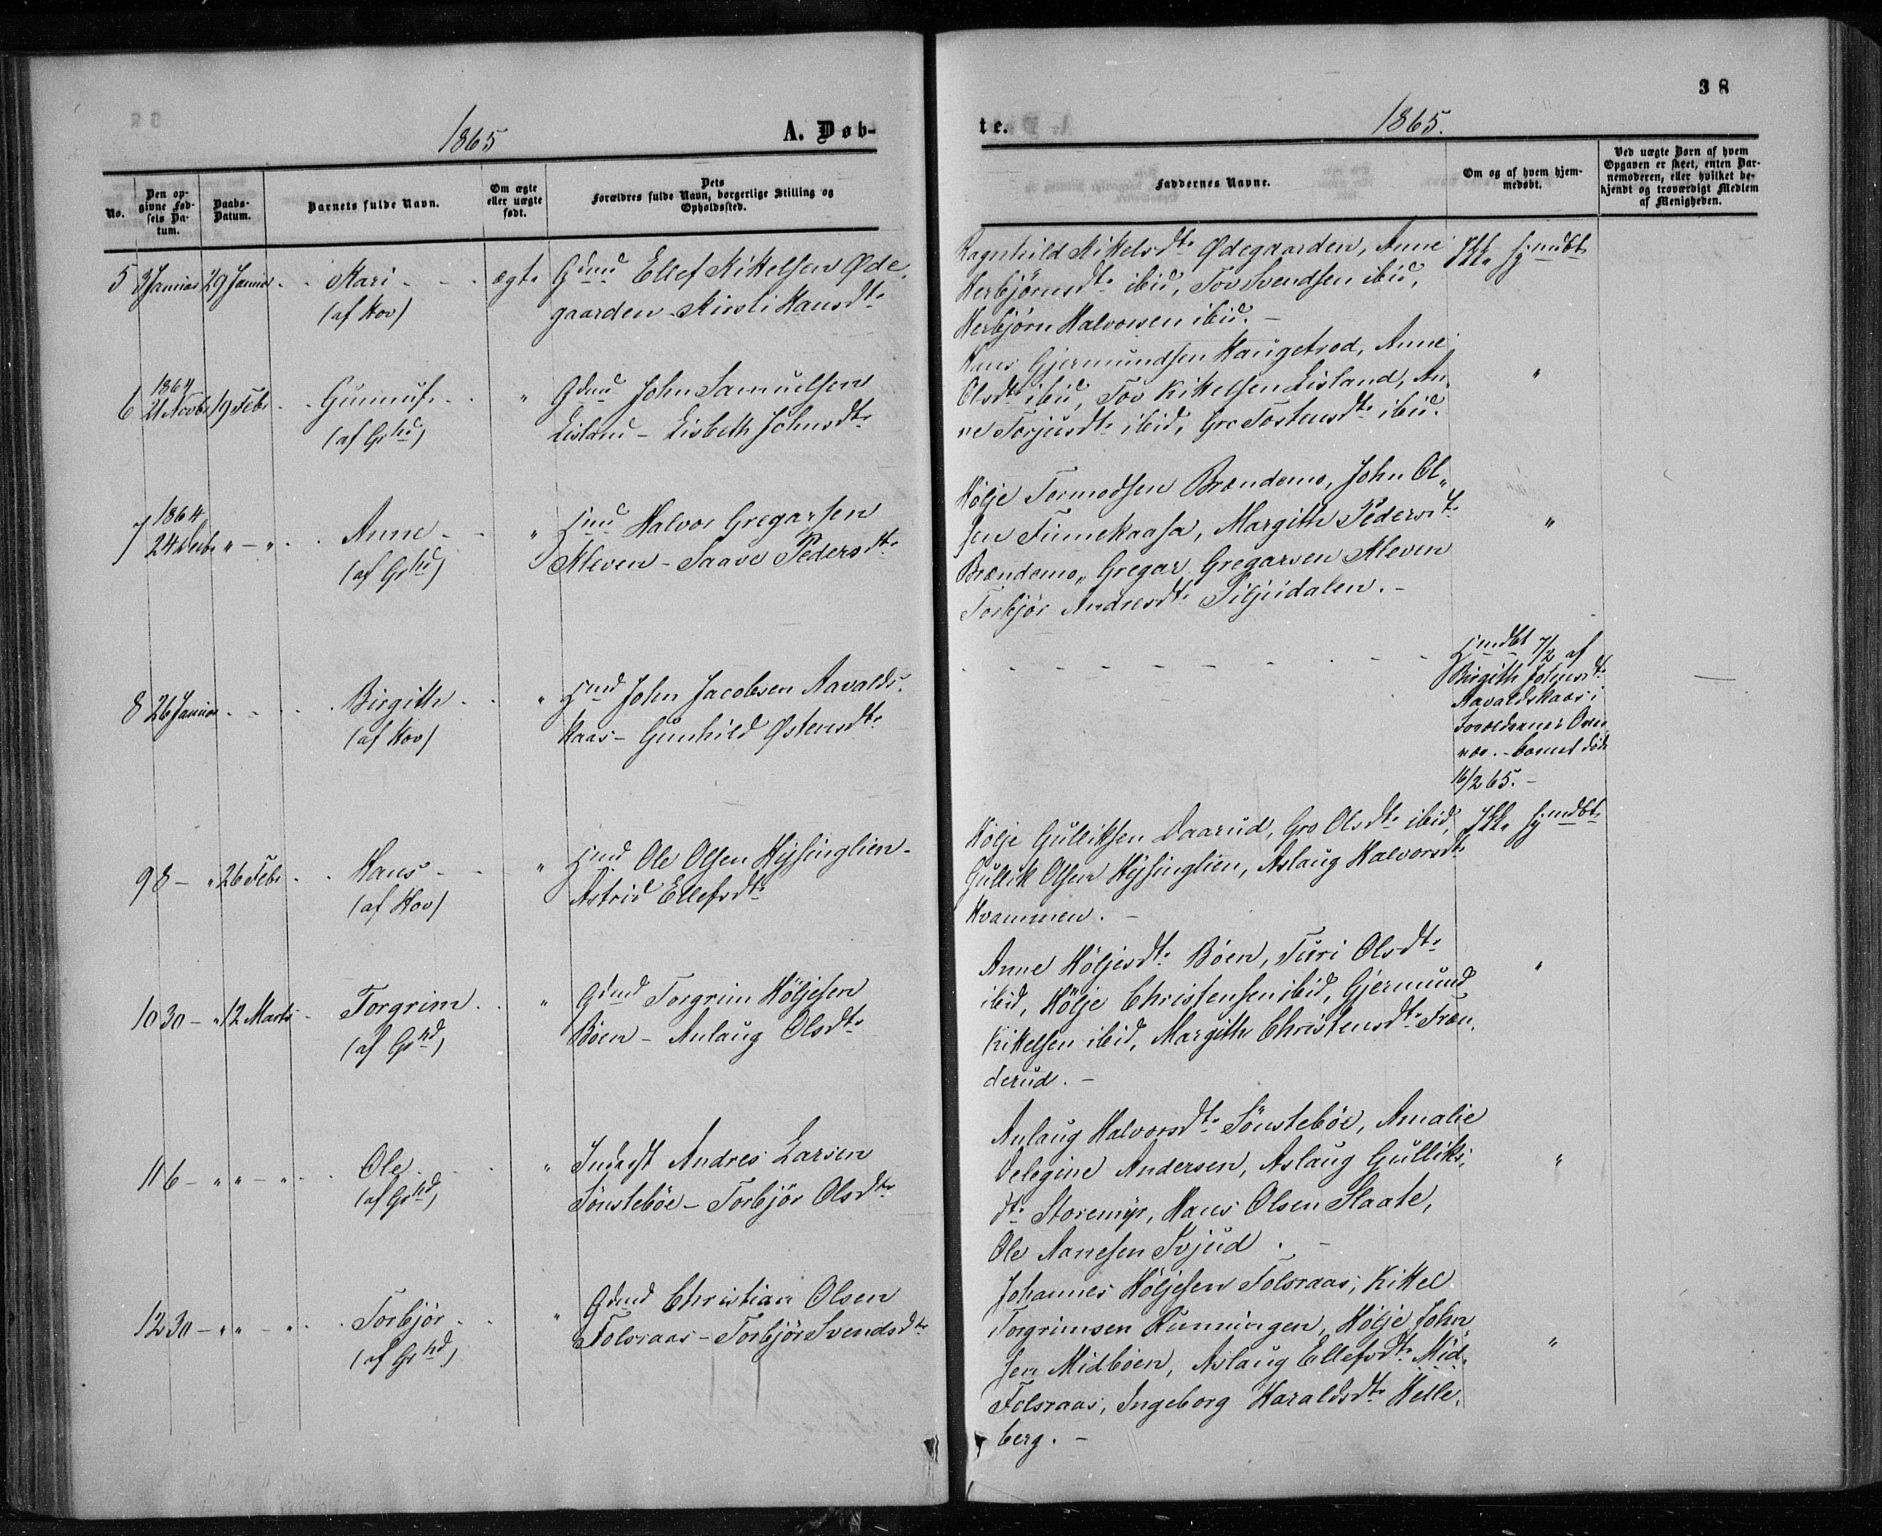 38
1865
A. Døb-
te.
1865.
No.
Den op-
givne Fød-
sels Da-
tum.
Daabs-
Datum.
Barnets fulde Navn.
Om ægte
eller uægte
født.
Dets
Forældres fulde Navn, borgerlige Stilling og
Opholdssted.
Faddernes Navne.
Om og af hvem hjem-
medøbt.
Ved uægte Børn af hvem
Opgaven er skeet, enten Bar-
nemoderen, eller hvilket be-
kjendt og troværdigt Medlem
af Menigheden.
5 3 Januar 29 Januar - Kari - - ægte Gdmd Ellef Kittelsen Øde-
(af Hov) gaarden - Kirsti Hansdtr
Ragnhild Kittelsdtr Ødegaarden, Anne
Herbjørnsdtr ibid, Tov Svendsen ibid,
Herbjørn Halvorsen ibid. -
Ikke hjmdbt
1864
6 21 Novbr 19 Febr - Gunnuf - " Gdmd John Samuelsen
(af Grhd) Lisland - Lisbeth Johnsdtr
Hans Gjermundsen Haugetrod, Anne
Olsdtr ibid, Tov Kittelsen Lisland, An-
ne Torjusdtr ibid, Gro Tostensdtr ibid.
"
1864
7 24 Decbr " - " - Anne - - " Hmd Halvor Gregarsen
(af Grhd) Kleven - Saave Pedersdtr
Hølje Tormodsen Brændemo, John Ol-
sen Finnekaasa, Margith Pedersdtr
Brændemo, Gregar Gregarsen Kleven
Torbjør Andresdtr Siljudalen. -
"
8 26 Januar - - - Birgith - - " Hmd John Jacobsen Aavalds-
(af Hov) kaas - Gunhild Østensdtr
Hjmdbt 7/2 af
Birgith Johnsdtr
Aavaldskaas i
Forældrenes Over-
vær. - barnet død
16/2 65. -
9 8 - " 26 Febr - - Hans - - " Hmd Ole Olsen Hejsinglien -
(af Hov) Astrid Ellefsdtr
Hølje Gulliksen Daarud, Gro Olsdtr ibid,
Gullik Olsen Hejsinglien, Aslaug Halvorsdtr
Kvammen. -
Ikke hjmdbt
10 30 - " 12 Marts - Torgrim - - " Gdmd Torgrim Høljesen
(af Grhd) Bøen - Anlaug Olsdtr
Anne Høljesdtr Bøen, Turi Olsdtr
ibid, Hølje Christensen ibid, Gjermund
Kittelsen ibid, Margith Christensdtr Træn-
derud. -
"
11 6 - " " - " - Ole - - " Inderst Andres Larsen
(af Grhd) Sønstebøe - Torbjør Olsdtr
Anlaug Halvorsdtr Sønstebøe, Amalie
Andersen, Aslaug Gulliks-
dtr Storemyr, Hans Olsen Slaate,
Ole Aanesen Svjud. -
"
12 30 - " " - " - Torbjør - - " Gdmd Christian Olsen
(af Grhd) Folsraas - Torbjør Svendsdtr
Johannes Høljesen Folsraas, Kittel
Torgrimsen Runningen, Hølje John-
sen Midbøen, Aslaug Ellefsdtr Mid-
Folsraas, Ingeborg Haraldsdtr Helle-
berg. -
"